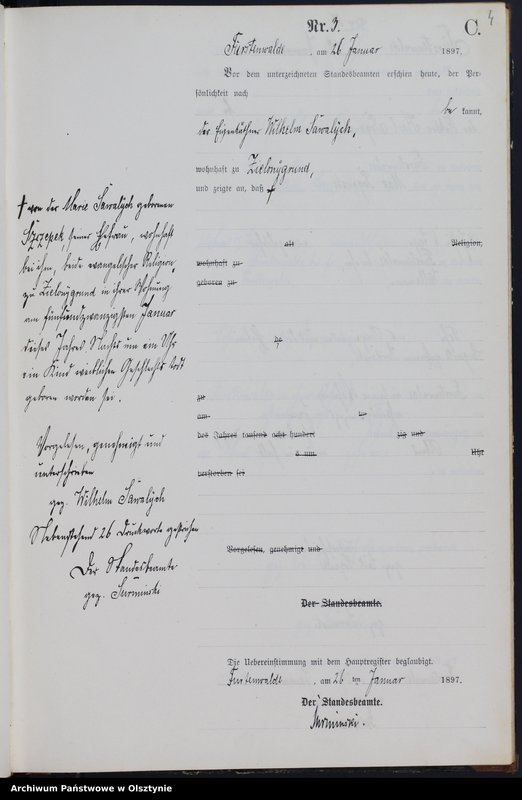 4
Nr. 3.
C.
Fürstenwalde, am 26 Januar 1897.
Vor dem unterzeichneten Standesbeamten erschien heute, der Per-
sönlichkeit nach
be kannt,
der Eigenkäthner Wilhelm Sawalych,
wohnhaft zu Zielonygrund,
und zeigte an, daß
von der Marie Sawalych geborenen
seiner Ehefrau, wohnhaft
bei ihm, beide evangelischer Religion,
zu Zielonygrund in ihrer Wohnung
am fünfundzwanzigsten Januar
dieses Jahres Nachts um ein Uhr
ein Kind weiblichen Geschlechts todt
geboren worden sei.
Vorgelesen, genehmigt und
unterschrieben
gez. Wilhelm Sawalych
Nebenstehend 26 Druckworte gestrichen
Der Standesbeamte
gez. Surminski
alt Religion,
wohnhaft zu
geboren zu
de
zu
am te
des Jahres tausend acht hundert zig und
s um Uhr
verstorben sei
Vorgelesen, genehmigt und
Der Standesbeamte.
Die Uebereinstimmung mit dem Hauptregister beglaubigt.
Fürstenwalde, am 26 ten Januar 1897.
Der Standesbeamte.
Surminski.
Archiwum Państwowe w Olsztynie